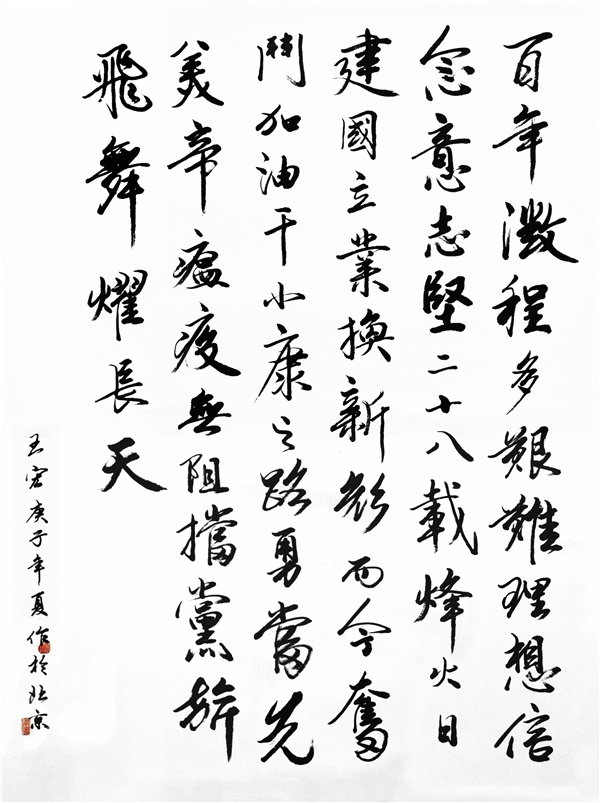 百年徵程多艱難理想信
念意志堅二十八載烽火日
建國立業換新顏而今奮
鬥加油干小康之路勇當先
美帝瘟疫無阻擋黨旂
飛舞耀長天
王宏庚子年夏作於北京